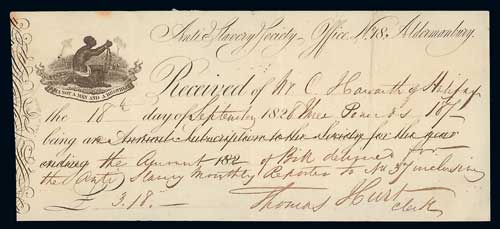 Anti Slavery Society Office No. 18, Aldermanbury.
AM I NOT A MAN AND A BROTHER
Received of Mr C Haworth of Halifax
the 18th day of September 1828 three Pounds 18/-
being an Annual Subscription to the Society for the year
ending the Amount 182 of Bill delivered for
the Anti Slavery Monthly Reporter to No 37 inclusive
£ 3.18.-
Thomas Hurst
Clerk